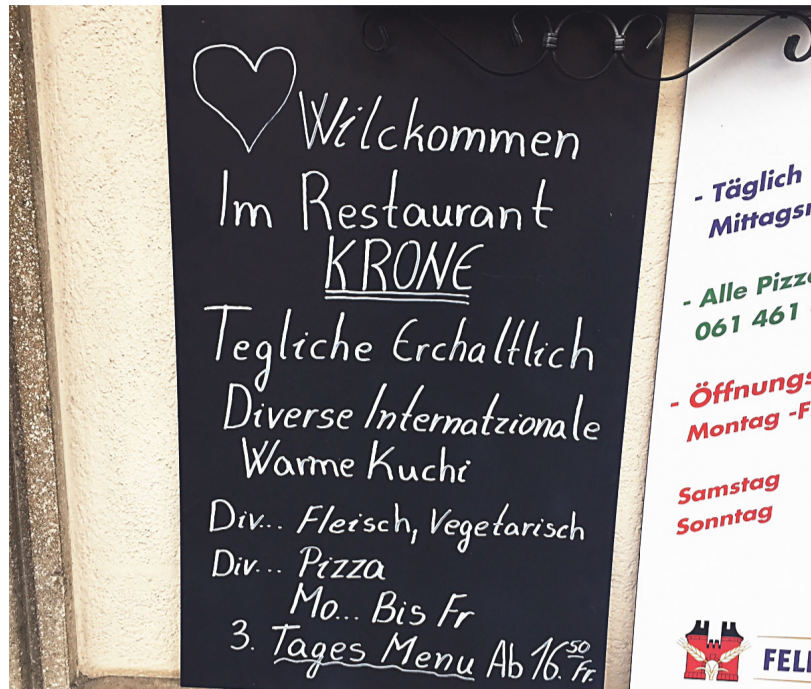 Wilckommen
Im Restaurant
KRONE
Tegliche Erchaltlich
Diverse Internatzionale
Warme Kuchi
Div... Fleisch, Vegetarisch
Div... Pizza
Mo... Bis Fr
3. Tages Menu Ab 16.50 Fr.
- Täglich
- Alle
061 461
Montag
Samstag
Sonntag